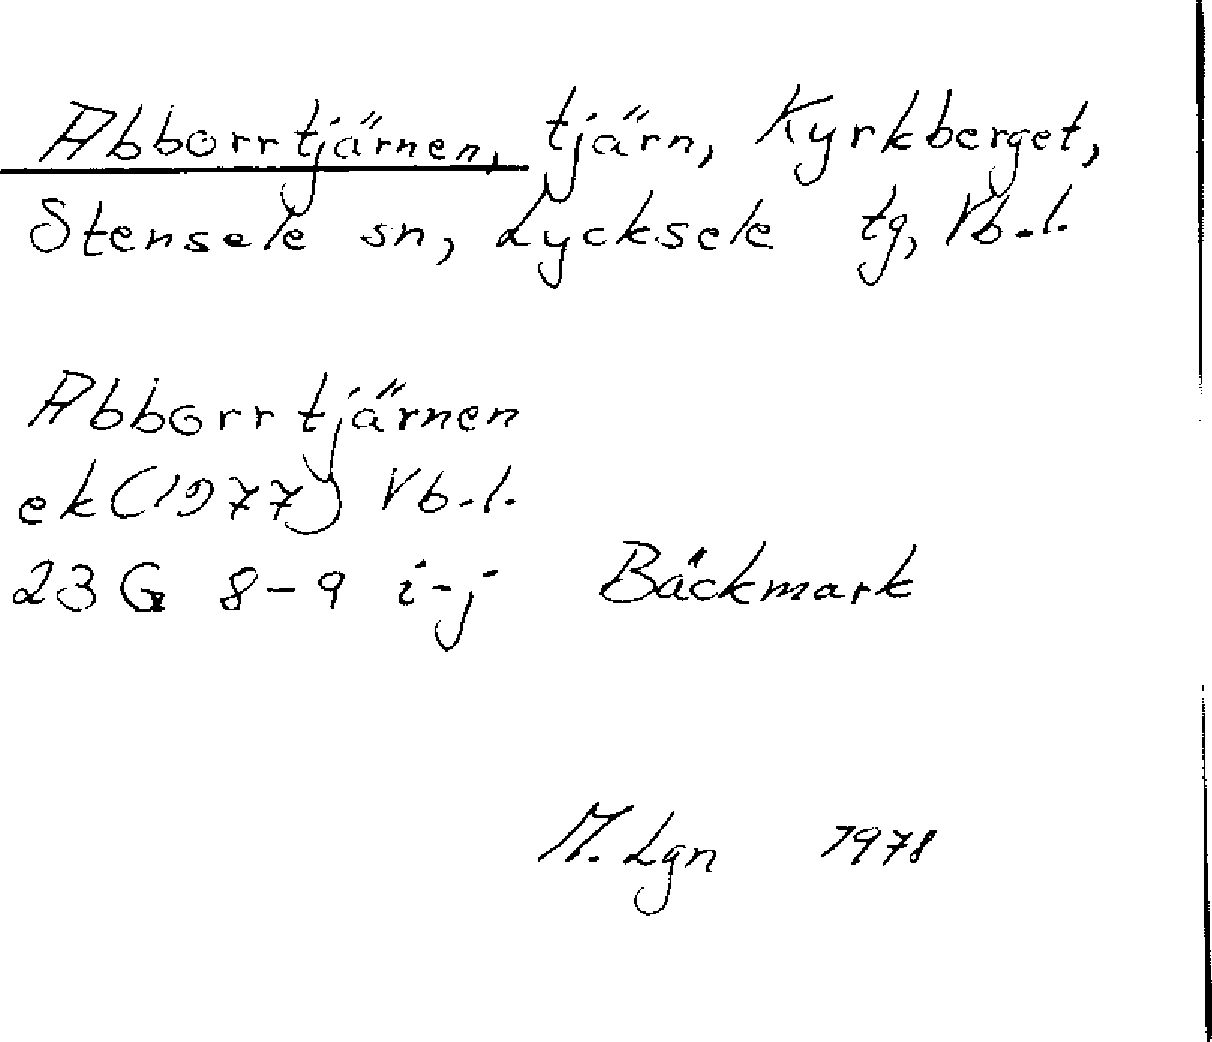 Abborrtjärnen, tjärn, Kyrkberget,
Stensele sn, Lycksele tg, Vb.l.
Abborrtjärnen
ek (1977) Vb.l.
23 G 8-9 i-j Bäckmark
M. Lgn 1978